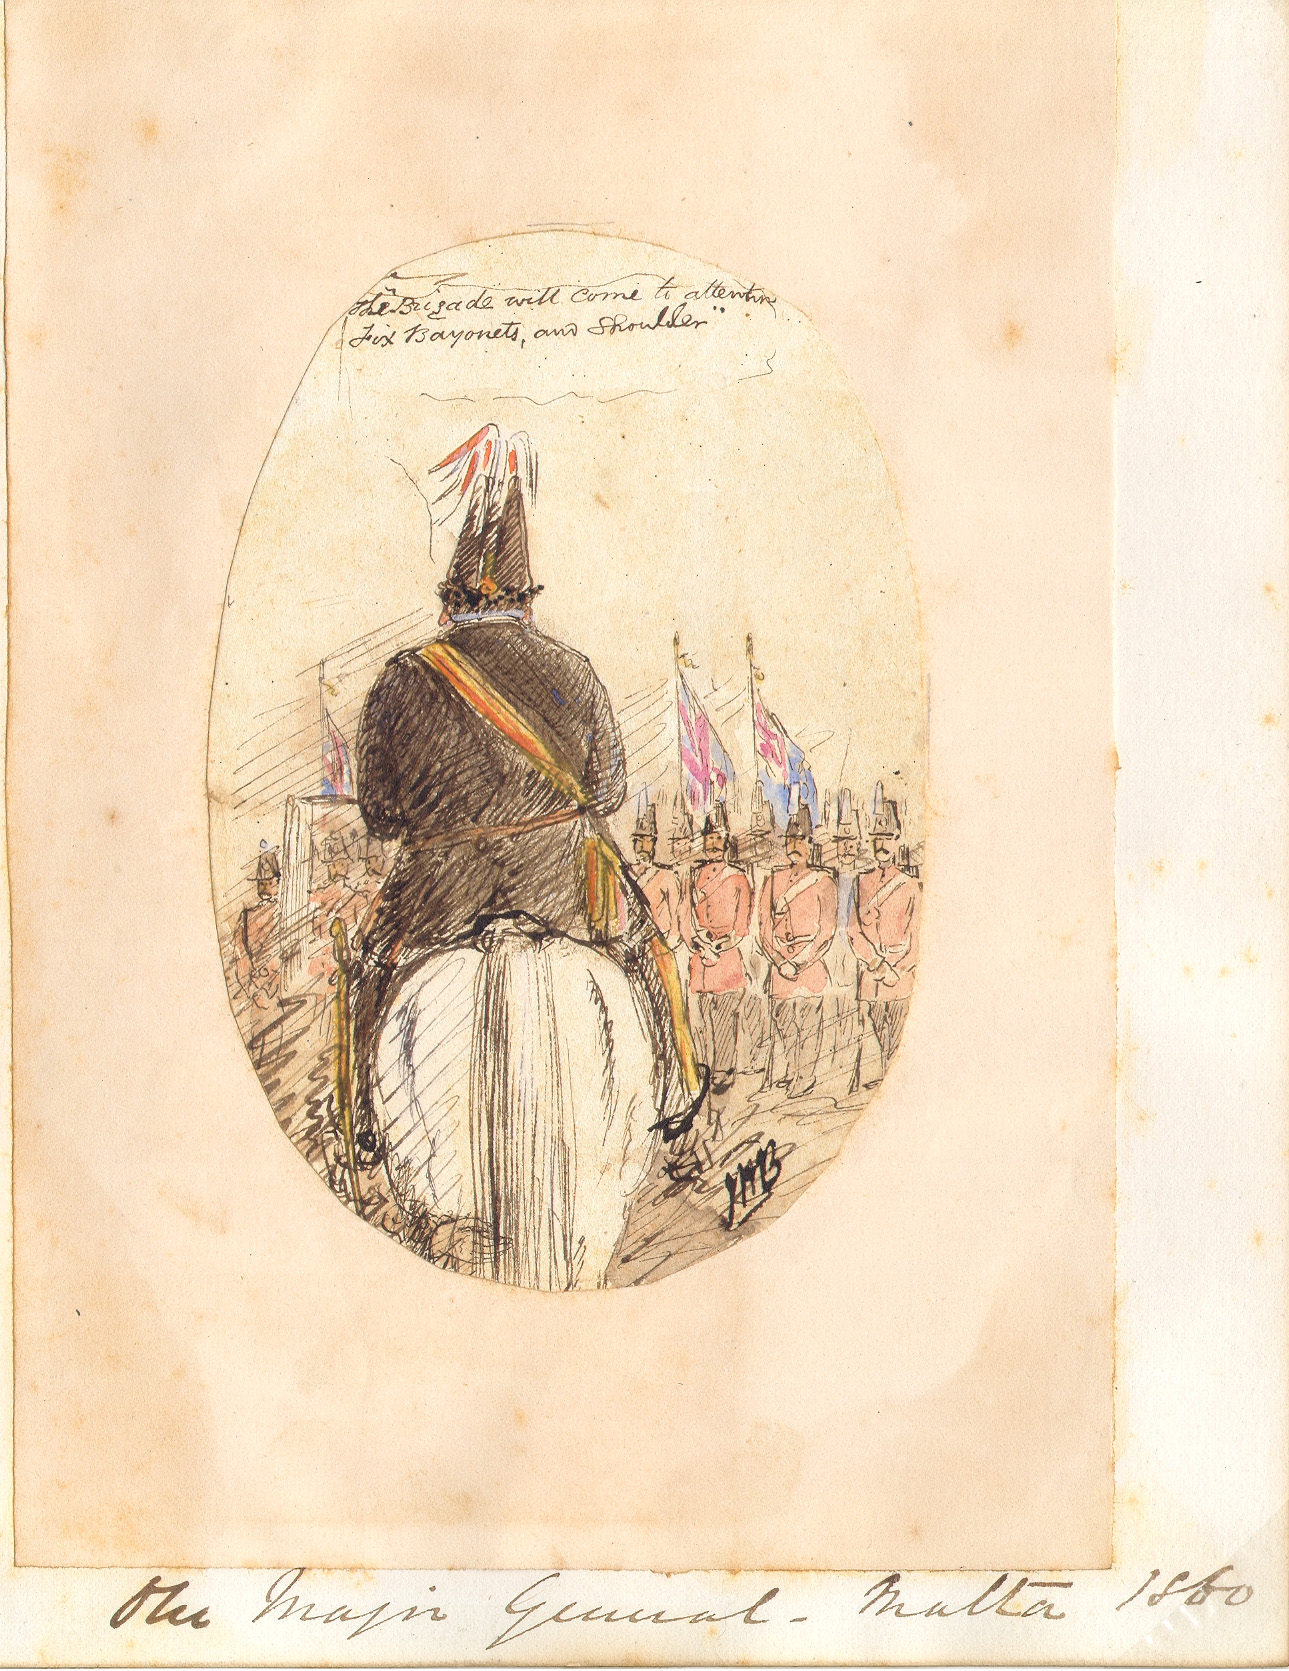 "The Brigade will come to attention
Fix Bayonets, and Shoulder"
HWB
Our Major General - Malta 1860